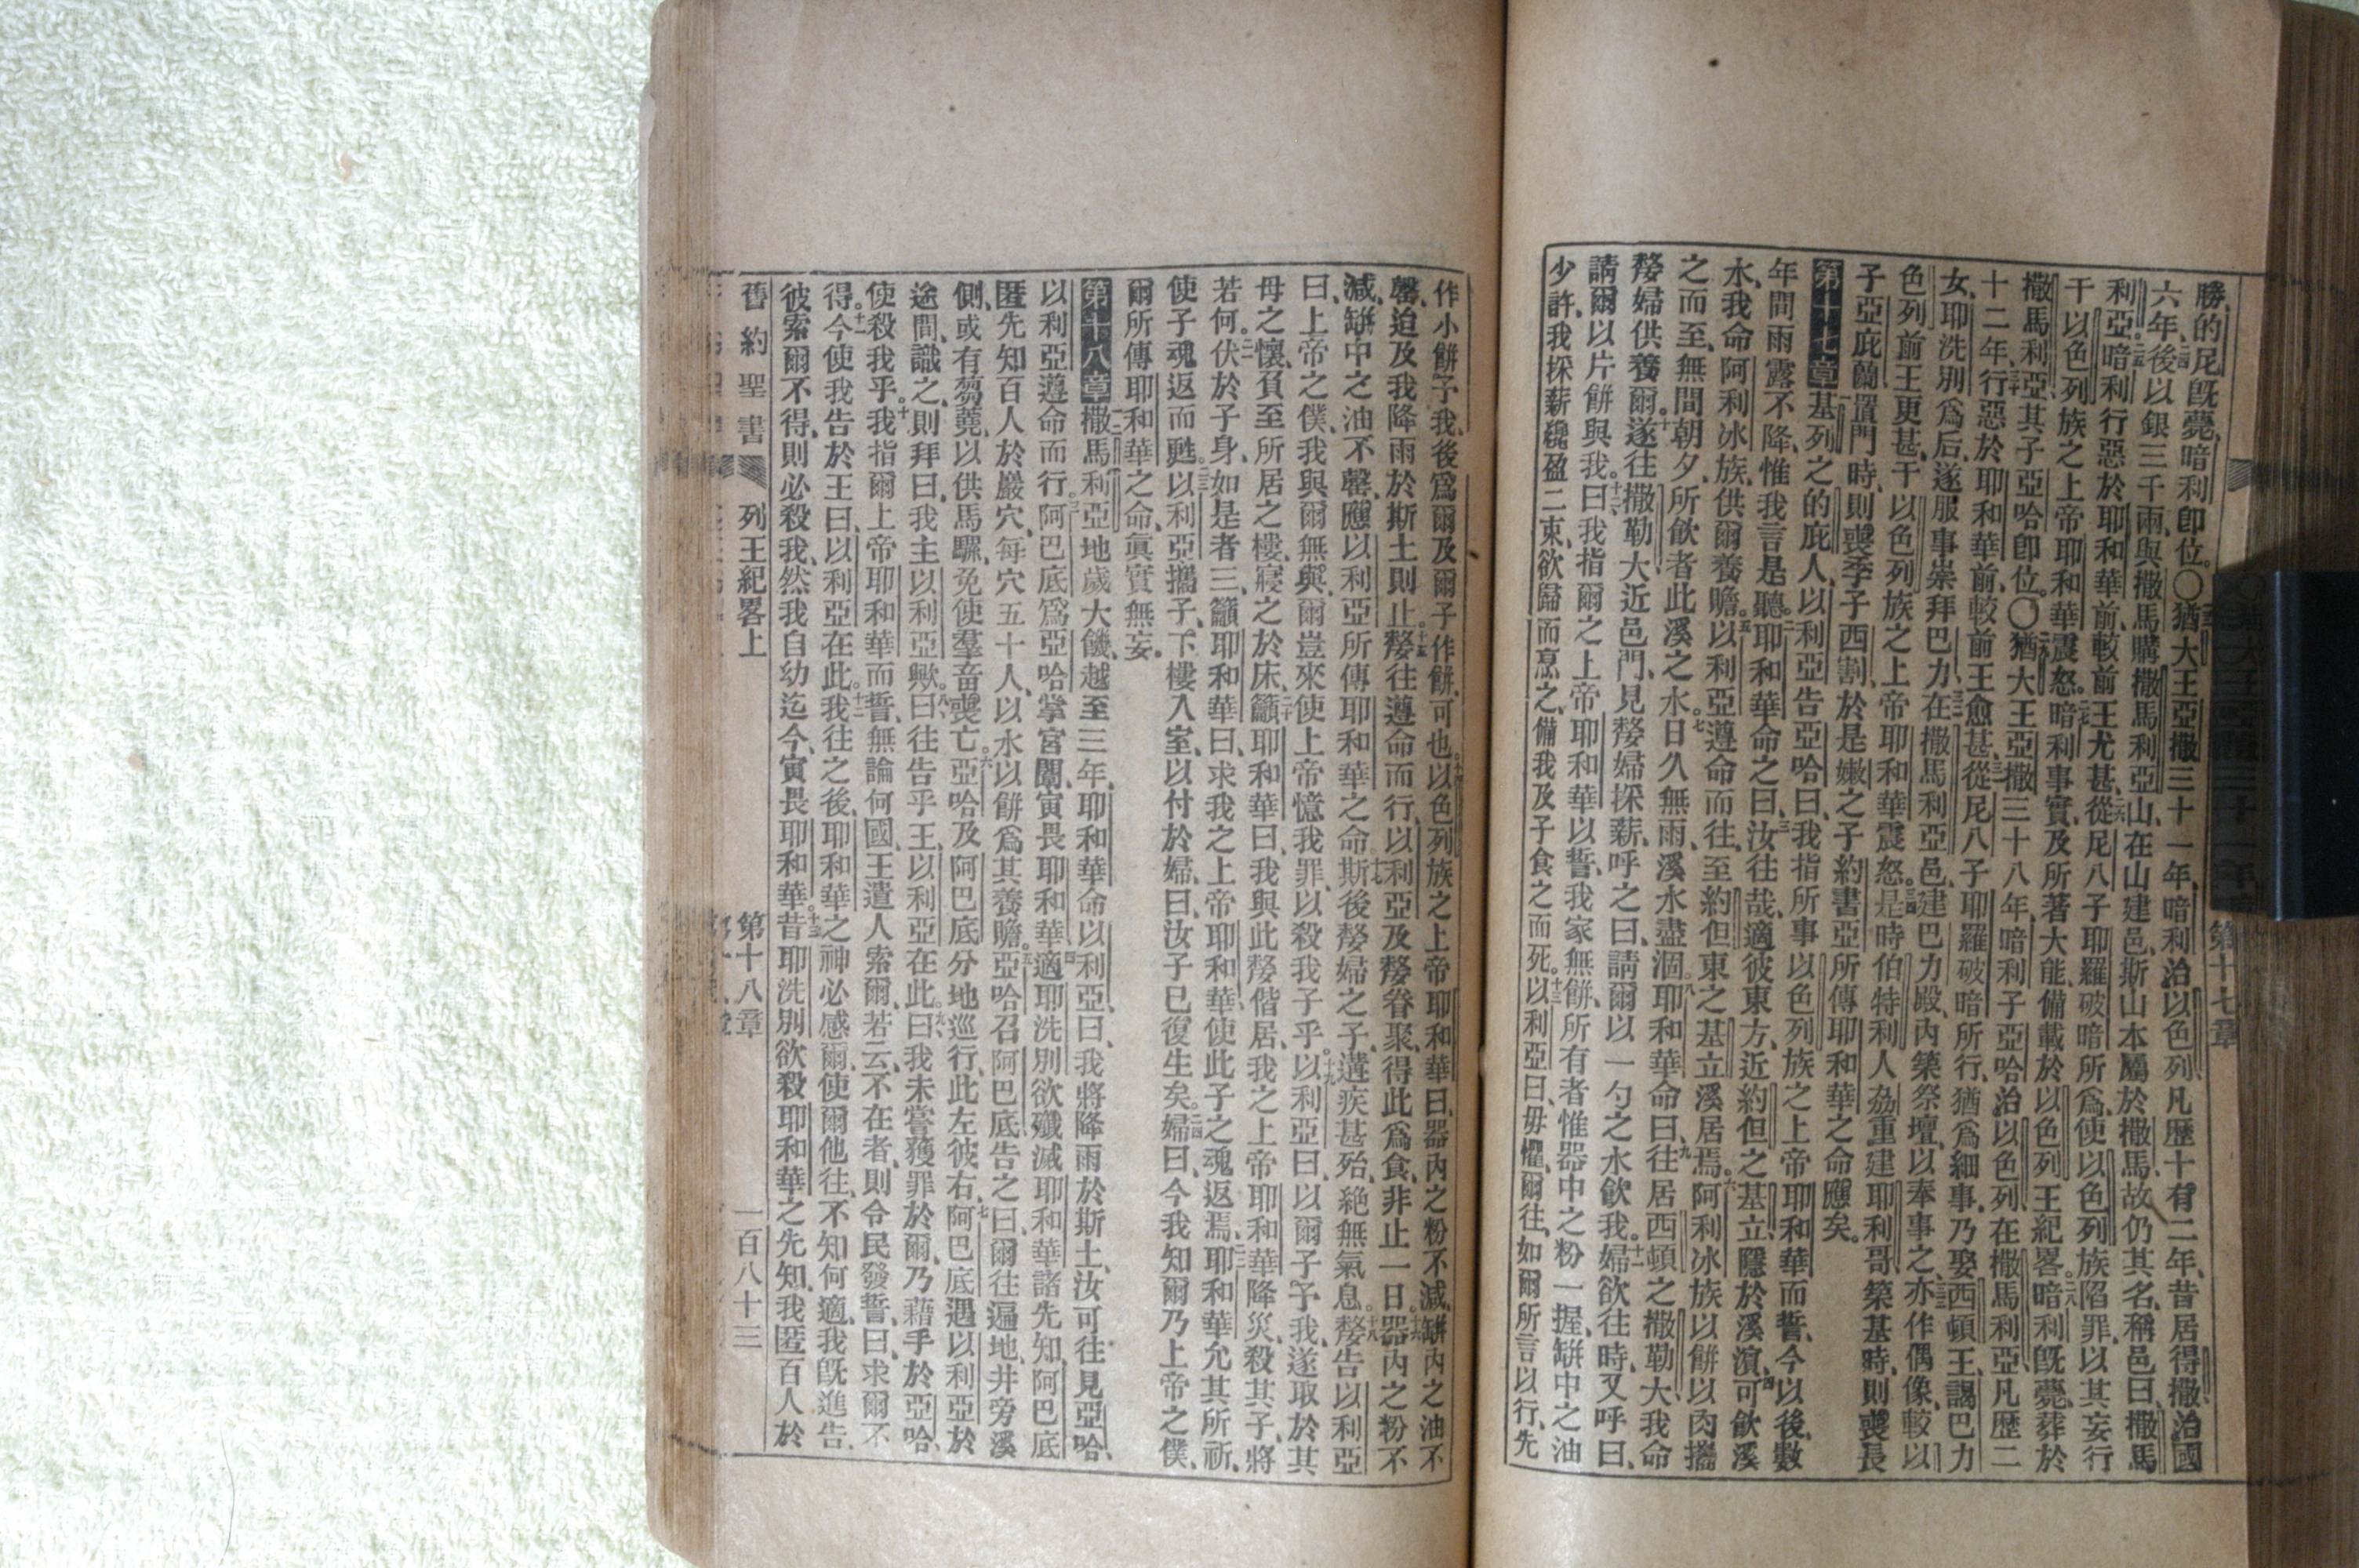 勝、的尼旣薨、暗利卽位。〇猶大王亞撒三十一年、暗利治以色列凡歷十有二年、昔居得撒治國
六年、後以銀三千兩、與撒馬購撒馬利亞山、在山建邑、斯山本屬於撒馬、故仍其名、稱邑曰撒馬
利亞。暗利行惡於耶和華前、較前王尤甚、從尼八子耶羅破暗所爲、使以色列族陷罪、以其妄行
干以色列族之上帝耶和華震怒。暗利事實、及所著大能、備載於以色列王紀畧。暗利旣薨、葬於
撒馬利亞、其子亞哈卽位。〇猶大王亞撒三十八年、暗利子亞哈治以色列、在撒馬利亞凡歷二
十二年、行惡於耶和華前、較前王愈甚、從尼八子耶羅破暗所行、猶爲細事、乃娶西頓王謁巴力
女、耶洗別爲后、遂服事崇拜巴力、在撒馬利亞邑、建巴力殿、內築祭壇、以奉事之、亦作偶像、較以
色列前王更甚、干以色列族之上帝耶和華震怒。是時伯特利人劦重建耶利哥、築基時、則喪長
子亞庇蘭、置門時、則喪季子西割、於是嫩之子約書亞所傳耶和華之命應矣。
第十七章 基列之的庇人、以利亞告亞哈曰、我指所事以色列族之上帝耶和華而誓、今以後、數
年間雨露不降、惟我言是聽。耶和華命之曰、汝往哉、適彼東方、近約但之基立、隱於溪濱、可飲溪
水、我命阿利冰族、供爾養贍。以利亞遵命而往、至約但東之基立溪居焉。阿利冰族以餅以肉攜
之而至、無間朝夕、所飲者此溪之水。日久無雨、溪水盡涸。耶和華命曰、往居西頓之撒勒大、我命
嫠婦供養爾。遂往撒勒大、近邑門、見嫠婦採薪、呼之曰、請爾以一勺之水飲我。婦欲往時、又呼曰、
請爾以片餅與我。曰、我指爾之上帝耶和華以誓、我家無餅、所有者惟器中之粉一握、缾中之油
少許、我採薪纔盈二束、欲歸而烹之、備我及子食之而死。以利亞曰、毋懼、爾往、如爾所言以行、先
作小餅予我、後爲爾及爾子作餅、可也。以色列族之上帝耶和華曰、器內之粉不減、缾內之油不
罄、迨及我降雨於斯土則止。嫠往遵命而行、以利亞及嫠眷聚、得此爲食、非止一日。器內之粉不
減、缾中之油不罄、應以利亞所傳耶和華之命。斯後嫠婦之子、遘疾甚殆、絕無氣息。嫠告以利亞
曰、上帝之僕、我與爾無與、爾豈來使上帝憶我罪、以殺我子乎。以利亞曰、以爾子予我、遂取於其
母之懷、負至所居之樓、寢之於床、籲耶和華曰、我與此嫠偕居、我之上帝耶和華降災、殺其子、將
若何。伏於子身、如是者三、籲耶和華曰、求我之上帝耶和華、使此子之魂返焉。耶和華允其所祈、
使子魂返而甦。以利亞攜子、下樓入室、以付於婦、曰、汝子已復生矣。婦曰、今我知爾乃上帝之僕、
爾所傳耶和華之命、眞實無妄。
第十八章 撒馬利亞地歲大饑、越至三年、耶和華命以利亞曰、我將降雨於斯土、汝可往見亞哈、
以利亞遵命而行。阿巴底爲亞哈掌宮闈、寅畏耶和華。適耶洗別欲殲滅耶和華諸先知、阿巴底
匿先知百人於巖穴、每穴五十人、以水以餅爲其養贍。亞哈召阿巴底告之曰、爾往遍地、井旁溪
側、或有芻蕘、以供馬騾、免使羣畜喪亡。亞哈及阿巴底分地巡行、此左彼右。阿巴底遇以利亞於
途間、識之、則拜曰、我主以利亞歟。曰、往告乎王、以利亞在此。曰、我未嘗獲罪於爾、乃藉手於亞哈、
使殺我乎。我指爾上帝耶和華而誓、無論何國、王遣人索爾、若云不在者、則令民發誓、曰、求爾不
得。今使我告於王曰、以利亞在此。我往之後、耶和華之神必感爾、使爾他往、不知何適、我旣進告、
彼索爾不得、則必殺我、然我自幼迄今、寅畏耶和華。昔耶洗別欲殺耶和華之先知、我匿百人於
舊約聖書 列王紀畧上 第十八章 一百八十三